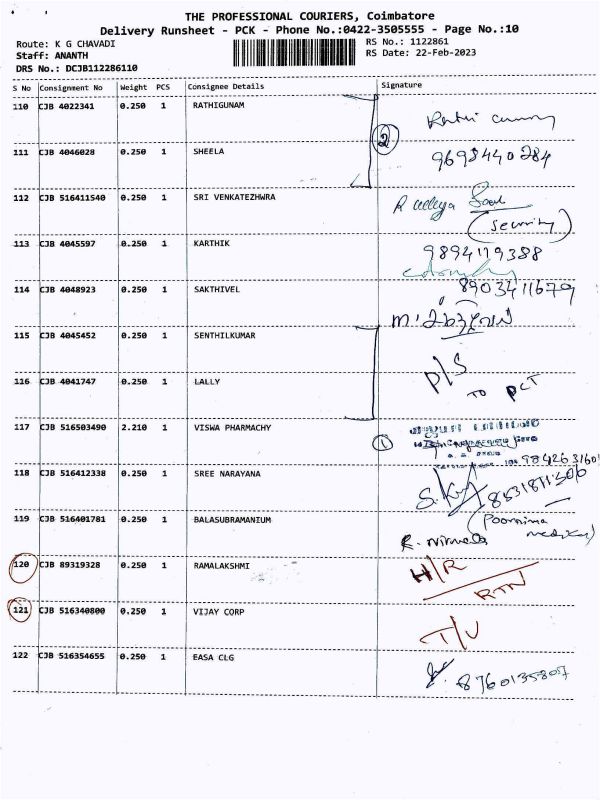 THE PROFESSIONAL COURIERS, Coimbatore
Delivery Runsheet - PCK - Phone No.:0422-3505555 - Page No.:10
Route: K G CHAVADI
RS No.: 1122861
Staff: ANANTH
RS Date: 22-Feb-2023
DRS No.: DCJB112286110
S No Consignment No Weight PCS Consignee Details Signature
110 CJB 4022341 0.250 1 RATHIGUNAM
2
111 CJB 4046028 0.250 1 SHEELA 9698440284
112 CJB 516411540 0.250 1 SRI VENKATEZHWRA
(security)
113 CJB 4045597 0.250 1 KARTHIK 9894119388
114 CJB 4048923 0.250 1 SAKTHIVEL 8903411679
115 CJB 4045452 0.250 1 SENTHILKUMAR P/S
116 CJB 4041747 0.250 1 LALLY TO PCT
117 CJB 516503490 2.210 1 VISWA PHARMACHY
1
118 CJB 516412338 0.250 1 SREE NARAYANA
119 CJB 516401781 0.250 1 BALASUBRAMANIUM (Poornima
R. Nirmala medikal)
120 CJB 89319328 0.250 1 RAMALAKSHMI H/R
RTN
121 CJB 516340800 0.250 1 VIJAY CORP T/U
122 CJB 516354655 0.250 1 EASA CLG 8760135807